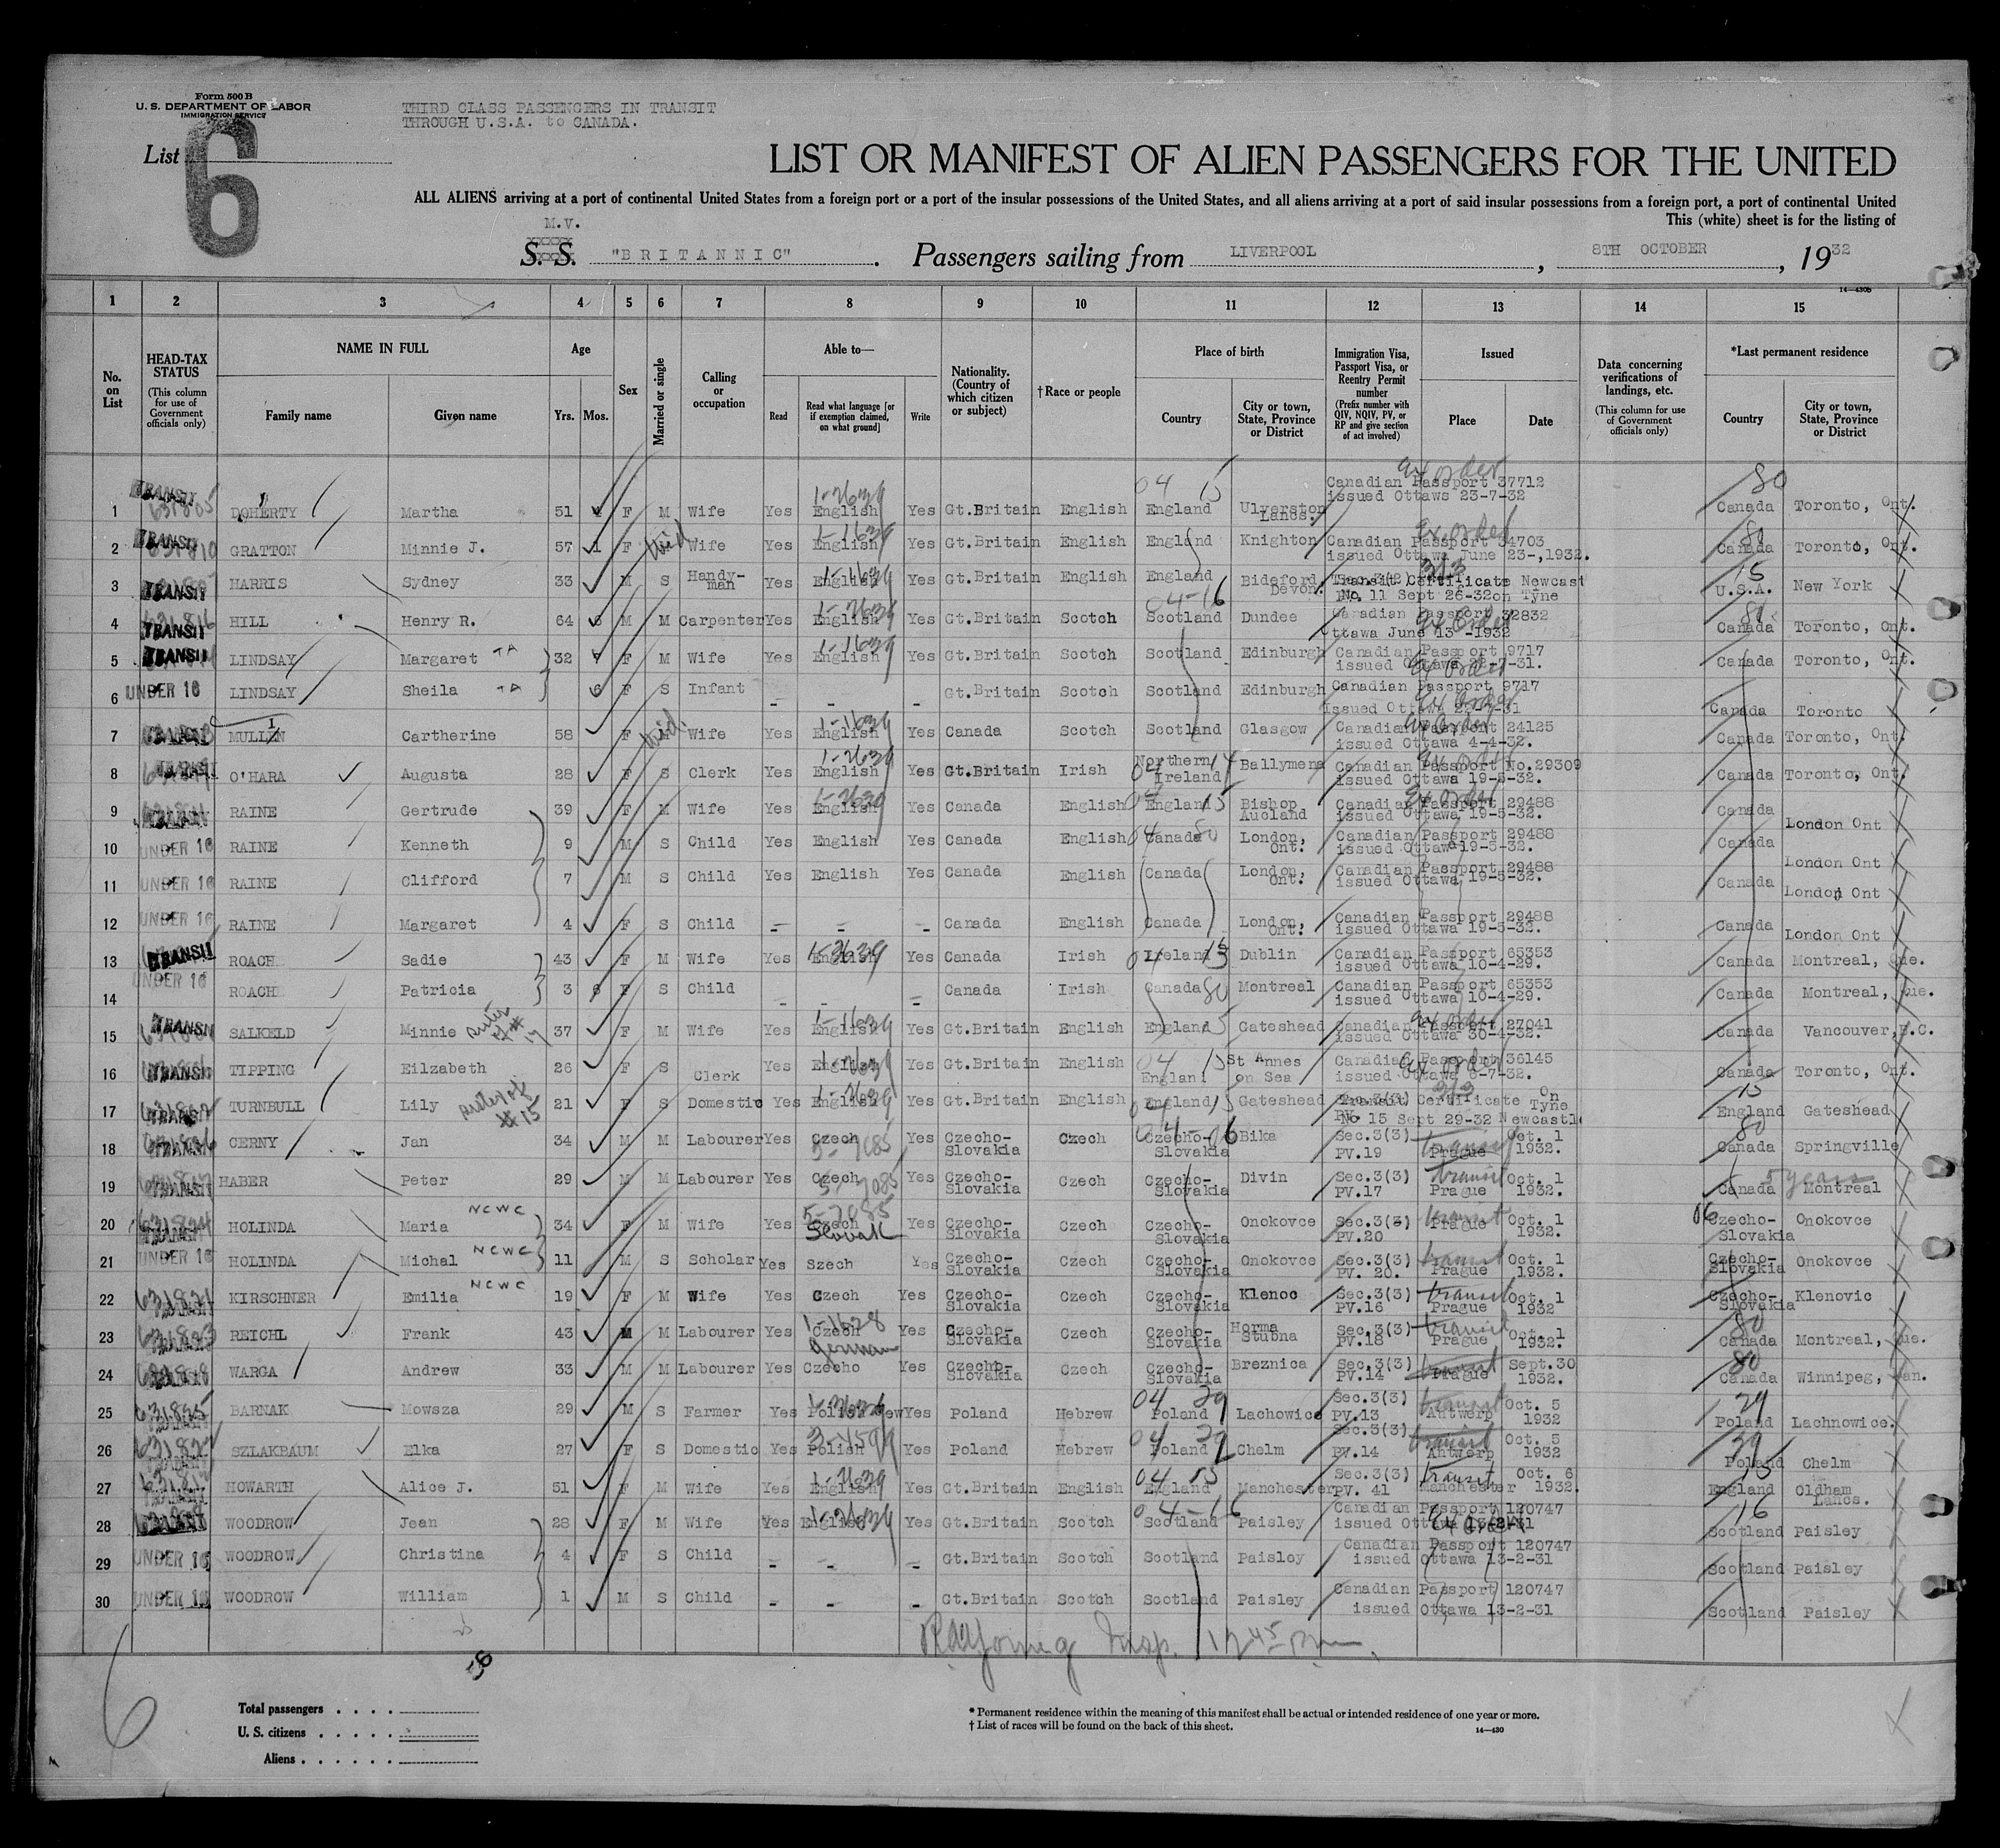 Form 500 B
U. S. DEPARTMENT OF LABOR
IMMIGRATION SERVICE
THIRD CLASS PASSENGERS IN TRANSIT
THROUGH U.S.A. to CANADA.
List 6
LIST OR MANIFEST OF ALIEN PASSENGERS FOR THE UNITED
ALL ALIENS arriving at a port of continental United States from a foreign port or a port of the insular possessions of the United States, and all aliens arriving at a port of said insular possessions from a foreign port, a port of continental United
This (white) sheet is for the listing of
M.V.
S. S. "BRITANNIC". Passengers sailing from LIVERPOOL, 8TH OCTOBER, 1932
14—430b
1 2 3 4 5 6 7 8 9 10 11 12 13 14 15
No. on List
HEAD-TAX STATUS (This column for use of Government officials only)
NAME IN FULL Family name Given name
Age Yrs. Mos.
Sex
Married or single
Calling or occupation
Able to— Read Read what language [or if exemption claimed, on what ground] Write
Nationality. (Country of which citizen or subject)
†Race or people
Place of birth Country City or town, State, Province or District
Immigration Visa, Passport Visa, or Reentry Permit number (Prefix number with QIV, NQIV, PV, or RP and give section of act involved)
Issued Place Date
Data concerning verifications of landings, etc. (This column for use of Government officials only)
*Last permanent residence Country City or town, State, Province or District
1 TRANSIT DOHERTY Martha 51 F M Wife Yes English Yes Gt.Britain English England Ulverston Lancs. Canadian Passport 37712 issued Ottawa 23-7-32 Canada Toronto, Ont.
2 TRANSIT GRATTON Minnie J. 57 1 F Wid Wife Yes English Yes Gt.Britain English England Knighton Canadian Passport 34703 issued Ottawa June 23-,1932. Canada Toronto, Ont.
3 TRANSIT HARRIS Sydney 33 M S Handy-man Yes English Yes Gt.Britain English England Bideford Devon. Transit Certificate Newcast No. 11 Sept 26-32 on Tyne U.S.A. New York
4 TRANSIT HILL Henry R. 64 6 M M Carpenter Yes English Yes Gt.Britain Scotch Scotland Dundee Canadian Passport 32832 Ottawa June 13 -1932 Canada Toronto, Ont.
5 TRANSIT LINDSAY Margaret 32 F M Wife Yes English Yes Gt.Britain Scotch Scotland Edinburgh Canadian Passport 9717 issued Ottawa 22-7-31. Canada Toronto, Ont.
6 UNDER 16 LINDSAY Sheila 6 F S Infant - - - Gt.Britain Scotch Scotland Edinburgh Canadian Passport 9717 issued Ottawa 22-7-31 Canada Toronto
7 MULLIN Cartherine 58 F Wid. Wife Yes English Yes Canada Scotch Scotland Glasgow Canadian Passport 24125 issued Ottawa 4-4-32. Canada Toronto, Ont.
8 TRANSIT O'HARA Augusta 28 F S Clerk Yes English Yes Gt.Britain Irish Northern Ireland Ballymena Canadian Passport No.29309 issued Ottawa 19-5-32. Canada Toronto, Ont.
9 RAINE Gertrude 39 F M Wife Yes English Yes Canada English England Bishop Aucland Canadian Passport 29488 issued Ottawa 19-5-32. Canada London Ont
10 UNDER 16 RAINE Kenneth 9 M S Child Yes English Yes Canada English Canada London, Ont. Canadian Passport 29488 issued Ottawa 19-5-32. Canada London Ont
11 UNDER 16 RAINE Clifford 7 M S Child Yes English Yes Canada English Canada London, Ont. Canadian Passport 29488 issued Ottawa 19-5-32. Canada London Ont
12 UNDER 16 RAINE Margaret 4 F S Child - - - Canada English Canada London, Ont. Canadian Passport 29488 issued Ottawa 19-5-32. Canada London Ont
13 TRANSIT ROACH Sadie 43 F M Wife Yes English Yes Canada Irish Ireland Dublin Canadian Passport 65353 issued Ottawa 10-4-29. Canada Montreal, Que.
14 UNDER 16 ROACH Patricia 3 6 F S Child - - - Canada Irish Canada Montreal Canadian Passport 65353 issued Ottawa 10-4-29. Canada Montreal, Que.
15 TRANSIT SALKELD Minnie sister of # 17 37 F M Wife Yes English Yes Gt.Britain English England Gateshead Canadian Passport 27041 issued Ottawa 30-4-32. Canada Vancouver, B.C.
16 TRANSIT TIPPING Eilzabeth 26 F S Clerk Yes English Yes Gt.Britain English Englan St Annes on Sea Canadian Passport 36145 issued Ottawa 6-7-32. Canada Toronto, Ont.
17 TRANSIT TURNBULL Lily sister of #15 21 F S Domestic Yes English Yes Gt.Britain English England Gateshead Transit Certificate On Tyne No 15 Sept 29-32 Newcastle England Gateshead
18 TRANSIT CERNY Jan 34 M M Labourer Yes Czech Yes Czecho-Slovakia Czech Czecho-Slovakia Bika Sec.3(3) PV.19 transit Prague Oct. 1 1932. Canada Springville
19 TRANSIT HABER Peter 29 M M Labourer Yes Czech Yes Czecho-Slovakia Czech Czecho-Slovakia Divin Sec.3(3) PV.17 transit Prague Oct. 1 1932. Canada 5 years Montreal
20 HOLINDA Maria NCWC 34 F M Wife Yes Czech Slovak Yes Czecho-Slovakia Czech Czecho-Slovakia Onokovce Sec.3(3) PV.20 transit Prague Oct. 1 1932. Czecho-Slovakia Onokovce
21 UNDER 16 HOLINDA Michal NCWC 11 M S Scholar Yes Szech Yes Czecho-Slovakia Czech Czecho-Slovakia Onokovce Sec.3(3) PV. 20. transit Prague Oct. 1 1932. Czecho-Slovakia Onokovce
22 KIRSCHNER Emilia NCWC 19 F M Wife Yes Czech Yes Czecho-Slovakia Czech Czecho-Slovakia Klenoc Sec.3(3) PV.16 transit Prague Oct. 1 1932 Czecho-Slovakia Klenovic
23 REICHL Frank 43 M M Labourer Yes Czech German Yes Czecho-Slovakia Czech Czecho-Slovakia Horma Stubna Sec.3(3) PV.18 transit Prague Oct. 1 1932. Canada Montreal, Que.
24 WARGA Andrew 33 M M Labourer Yes Czecho Yes Czecho-Slovakia Czech Czecho-Slovakia Breznica Sec.3(3) PV.14 transit Prague Sept.30 1932. Canada Winnipeg, Man.
25 BARNAK Mowsza 29 M S Farmer Yes Polish Yes Poland Hebrew Poland Lachowice Sec.3(3) PV.13 transit Antwerp Oct. 5 1932 Poland Lachnowice.
26 SZLAKBAUM Elka 27 F S Domestic Yes Polish Yes Poland Hebrew Poland Chelm Sec.3(3) PV.14 transit Antwerp Oct. 5 1932 Poland Chelm
27 HOWARTH Alice J. 51 F M Wife Yes English Yes Gt.Britain English England Manchester Sec.3(3) PV. 41 transit Manchester Oct. 6 1932. England Oldham Lancs.
28 WOODROW Jean 28 F M Wife Yes English Yes Gt.Britain Scotch Scotland Paisley Canadian Passport 120747 issued Ottawa 13-2-31 Scotland Paisley
29 UNDER 16 WOODROW Christina 4 F S Child - - - Gt.Britain Scotch Scotland Paisley Canadian Passport 120747 issued Ottawa 13-2-31 Scotland Paisley
30 UNDER 16 WOODROW William 1 M S Child - - - Gt.Britain Scotch Scotland Paisley Canadian Passport 120747 issued Ottawa 13-2-31 Scotland Paisley
Young Insp. 12 45 pm.
6
Total passengers . . . .
U. S. citizens . . . . .
Aliens . . . . . .
* Permanent residence within the meaning of this manifest shall be actual or intended residence of one year or more.
† List of races will be found on the back of this sheet.
14—430